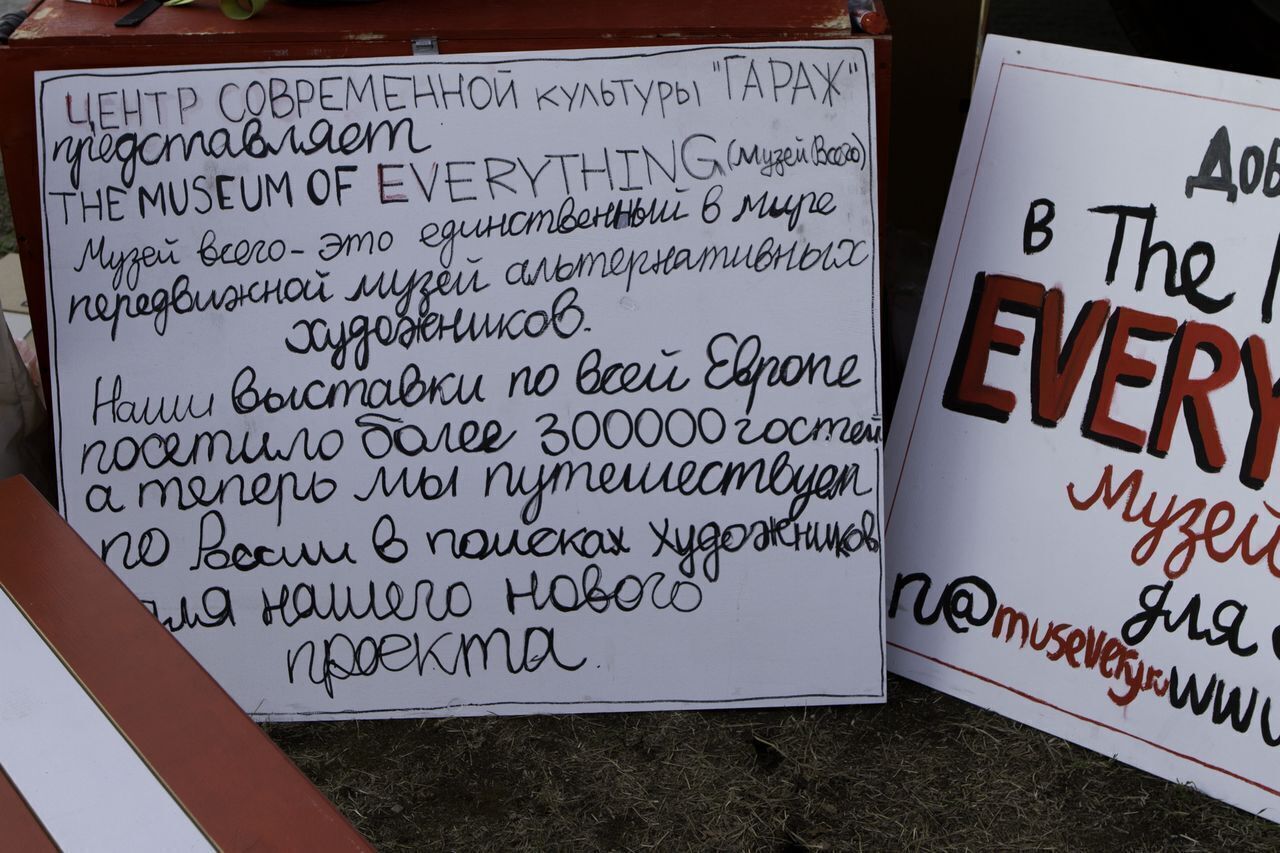 ЦЕНТР СОВРЕМЕННОЙ КУЛЬТУРЫ "ГАРАЖ"
представляет
THE MUSEUM OF EVERYTHING (Музей Всего)
Музей всего - это единственный в мире
передвижной музей альтернативных
художников.
Наши выставки по всей Европе
посетило более 300000 гостей
а теперь мы путешествуем
по России в поисках художников
для нашего нового
проекта.
в The
EVERY
Музей
для
n@musevery.ru